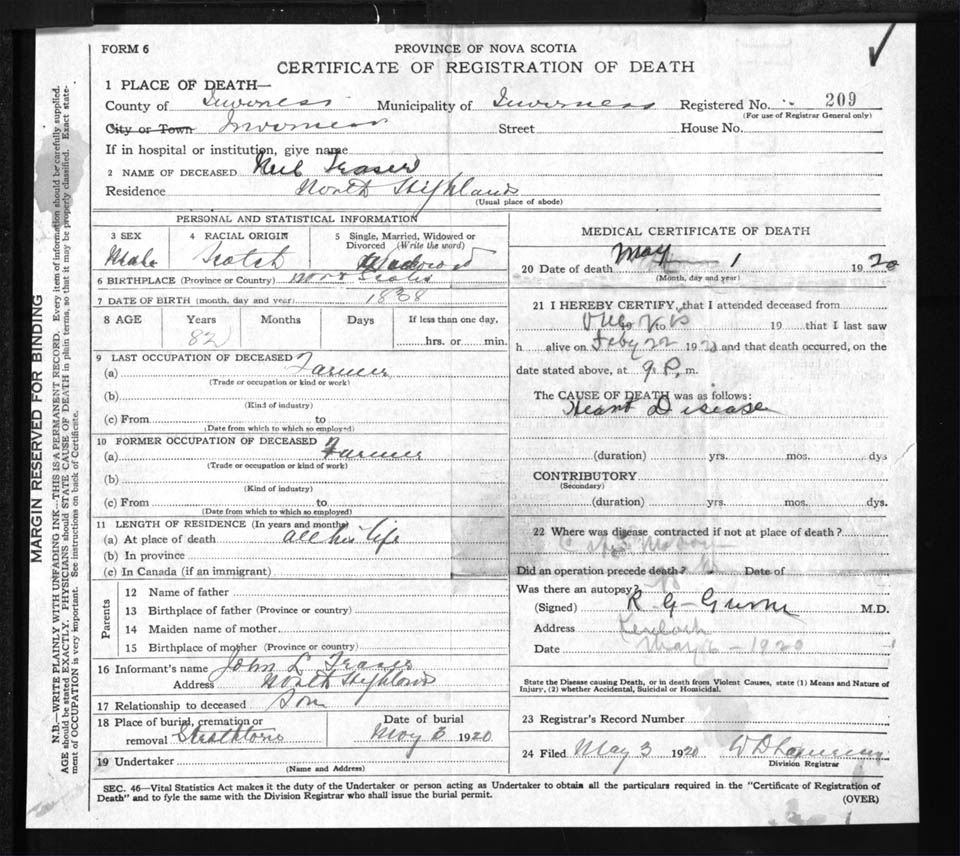 FORM 6
PROVINCE OF NOVA SCOTIA
CERTIFICATE OF REGISTRATION OF DEATH
1 PLACE OF DEATH—
County of Inverness Municipality of Inverness Registered No. 209
(For use of Registrar General only)
City or Town Inverness Street House No.
If in hospital or institution, give name
2 NAME OF DECEASED Neil Fraser
Residence North Highlands
(Usual place of abode)
PERSONAL AND STATISTICAL INFORMATION
3 SEX 4 RACIAL ORIGIN 5 Single, Married, Widowed or Divorced (Write the word)
Male Scotch
6 BIRTHPLACE (Province or Country) Nova Scotia
7 DATE OF BIRTH (month, day and year) 1838
8 AGE Years Months Days If less than one day,
82 hrs. or min.
9 LAST OCCUPATION OF DECEASED
(a) Farmer
(Trade or occupation or kind or work)
(b)
(Kind of industry)
(c) From to
(Date from which to which so employed)
10 FORMER OCCUPATION OF DECEASED
(a) Farmer
(Trade or occupation or kind of work)
(b)
(Kind of industry)
(c) From to
(Date from which to which so employed)
11 LENGTH OF RESIDENCE (In years and months)
(a) At place of death all his life
(b) In province
(c) In Canada (if an immigrant)
Parents
12 Name of father
13 Birthplace of father (Province or country)
14 Maiden name of mother
15 Birthplace of mother (Province or country)
16 Informant's name John L Fraser
Address North Highlands
17 Relationship to deceased Son
18 Place of burial, cremation or Date of burial
removal May 3 1920
19 Undertaker
(Name and Address)
MEDICAL CERTIFICATE OF DEATH
20 Date of death May 1 1920
(Month, day and year)
21 I HEREBY CERTIFY, that I attended deceased from
to 19 that I last saw
h alive on Feby 22 1920 and that death occurred, on the
date stated above, at 9 P. m.
The CAUSE OF DEATH was as follows:
Heart Disease
(duration) yrs. mos. dys
CONTRIBUTORY
(Secondary)
(duration) yrs. mos. dys.
22 Where was disease contracted if not at place of death?
Did an operation precede death? Date of
Was there an autopsy?
(Signed) R G M.D.
Address
Date May 1920
State the Disease causing Death, or in death from Violent Causes, state (1) Means and Nature of
Injury, (2) whether Accidental, Suicidal or Homicidal.
23 Registrar's Record Number
24 Filed May 3 1920 W D
Division Registrar
SEC. 46—Vital Statistics Act makes it the duty of the Undertaker or person acting as Undertaker to obtain all the particulars required in the "Certificate of Registration of
Death" and to fyle the same with the Division Registrar who shall issue the burial permit.
(OVER)
MARGIN RESERVED FOR BINDING
N.B.—WRITE PLAINLY WITH UNFADING INK—THIS IS A PERMANENT RECORD. Every item of information should be carefully supplied.
AGE should be stated EXACTLY. PHYSICIANS should STATE CAUSE OF DEATH in plain terms, so that it may be properly classified. Exact state-
ment of OCCUPATION is very important. See instructions on back of Certificate.